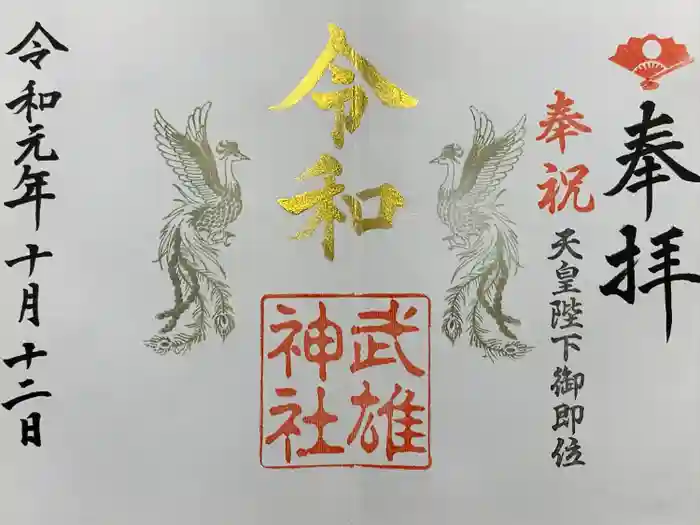 奉拝
奉祝
天皇陛下御即位
令和
武雄
神社
令和元年十月十二日